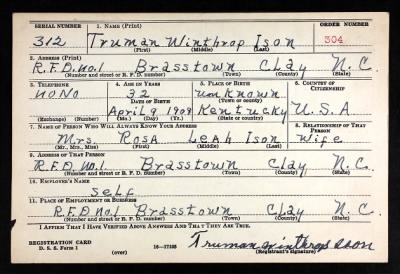 SERIAL NUMBER 1. NAME (Print) ORDER NUMBER
312 Truman Winthrop Ison 304
(First) (Middle) (Last)
2. ADDRESS (Print)
R.F.D. no.1 Brasstown Clay N.C.
(Number and street or R. F. D. number) (Town) (County) (State)
3. TELEPHONE 4. AGE IN YEARS 5. PLACE OF BIRTH 6. COUNTRY OF CITIZENSHIP
NONO 32 unknown
DATE OF BIRTH (Town or county)
April 9 1909 Kentucky U.S.A
(Exchange) (Number) (Mo.) (Day) (Yr.) (State or country)
7. NAME OF PERSON WHO WILL ALWAYS KNOW YOUR ADDRESS 8. RELATIONSHIP OF THAT PERSON
Mrs. Rosa Leah Ison Wife
(Mr., Mrs., Miss) (First) (Middle) (Last)
9. ADDRESS OF THAT PERSON
R.F.D. no.1 Brasstown Clay N.C.
(Number and street or R. F. D. number) (Town) (County) (State)
10. EMPLOYER'S NAME
Self
11. PLACE OF EMPLOYMENT OR BUSINESS
R.F.D no.1 Brasstown Clay N.C.
(Number and street or R. F. D. number) (Town) (County) (State)
I AFFIRM THAT I HAVE VERIFIED ABOVE ANSWERS AND THAT THEY ARE TRUE.
REGISTRATION CARD
D. S. S. Form 1 (over) 16—17105 Truman Winthrop Ison
(Registrant's signature)